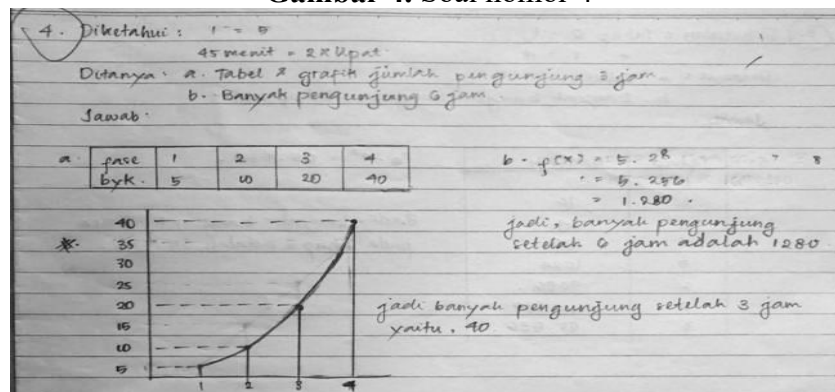 Gambar 4. Soal nomor 4
4. Diketahui : 1 = 5
45 menit = 2x lipat
Ditanya : a. Tabel & grafik jumlah pengunjung 3 jam
b. Banyak pengunjung 6 jam.
Jawab :
a. fase 1 2 3 4
byk. 5 10 20 40
b. f(x) = 5 . 2⁸
= 5 . 256
= 1.280 .
jadi, banyak pengunjung
setelah 6 jam adalah 1280.
40
35
30
25
20
15
10
5
1 2 3 4
jadi banyak pengunjung setelah 3 jam
yaitu . 40